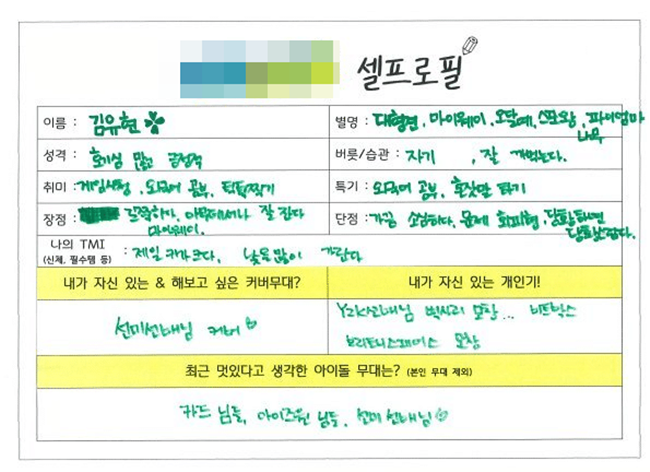 셀프로필
이름 : 김유현
별명 : 대형견, 마이웨이, 오달예, 스포왕, 파이엄마
나무
성격 : 호기심 많고 긍정적
버릇/습관 : 자기 , 잘 까먹는다.
취미 : 게임시청, 외국어 공부, 틱톡찍기
특기 : 외국어 공부, 혼잣말 하기
장점 : 길쭉하다, 아무데서나 잘 잔다
마이웨이.
단점 : 가끔 소심하다, 문제 회피형, 당황하면
당황한다.
나의 TMI
(신체, 필수템 등) : 제일 키가 크다, 낯을 많이 가린다
내가 자신 있는 & 해보고 싶은 커버무대?
내가 자신 있는 개인기!
선미선배님 커버
선배님 모창... 비트박스
브리트니스피어스 모창
최근 멋있다고 생각한 아이돌 무대는? (본인 무대 제외)
카드 님들, 아이즈원 님들, 선미 선배님